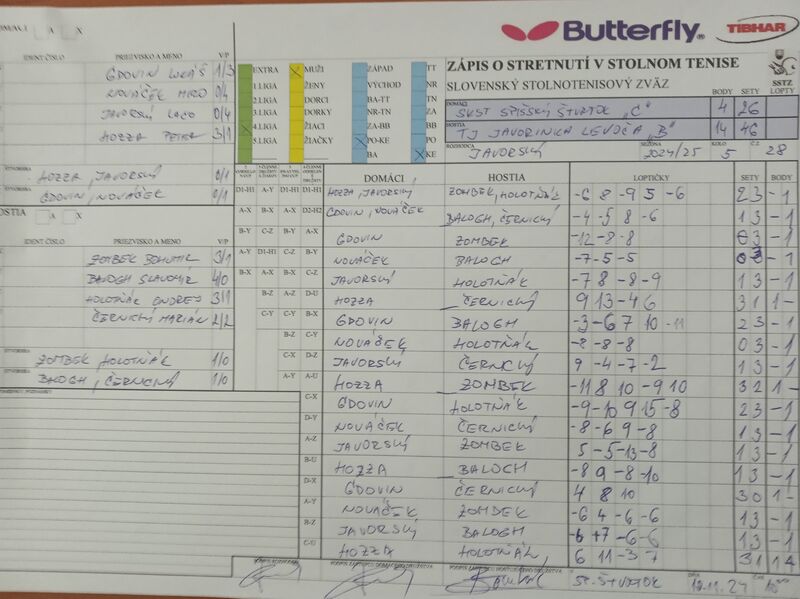 Butterfly
TIBHAR
DOMÁCI A X
IDENT ČÍSLO PRIEZVISKO A MENO V/P
GDOVIN LUKÁŠ 1/3
NOVÁČEK MIRO 0/4
JAVORSKÝ LACO 0/4
HOZZA PETER 3/1
HOZZA, JAVORSKÝ 0/1
GDOVIN, NOVÁČEK 0/1
HOSTIA A X
IDENT ČÍSLO PRIEZVISKO A MENO V/P
ZOMBEK BOHUMIR 3/1
BALOGH SLAVOMÍR 4/0
HOLOTŇÁK ONDREJ 3/1
ČERNICKÝ MARIÁN 2/2
ZOMBEK HOLOTŇÁK 1/0
BALOGH, ČERNICKÝ 1/0
EXTRA MUŽI ZÁPAD TT
1 LIGA ŽENY VÝCHOD NR
2 LIGA DORCI BA-TT TN
3 LIGA DORKY NR-TN ZA
4 LIGA ŽIACI ZA-BB BB
5 LIGA ŽIAČKY PO-KE PO
BA KE
ZÁPIS O STRETNUTÍ V STOLNOM TENISE
SLOVENSKÝ STOLNOTENISOVÝ ZVÄZ
SSTZ
BODY SETY LOPTY
DOMÁCI SKST SPIŠSKÝ ŠTVRTOK "C" 4 26
HOSTIA TJ JAVORINKA LEVOČA "B" 14 46
ROZHODCA JAVORSKÝ SEZÓNA 2024/25 KOLO 5 Č.Z 28
DOMÁCI HOSTIA LOPTIČKY SETY BODY
D1-H1 A-Y D1-H1 D1-H1 HOZZA, JAVORSKÝ ZOMBEK, HOLOTŇÁK -6 8 -9 5 -6 2 3 -1
A-X B-X A-X D2-H2 GDOVIN, NOVÁČEK BALOGH, ČERNICKÝ -4 -5 8 -6 1 3 -1
B-Y C-Z B-Y A-X GDOVIN ZOMBEK -12 -8 -8 0 3 -1
A-Y D1-H1 C-Z B-Y NOVÁČEK BALOGH -7 -5 -5 0 3 -1
B-X A-X B-X C-Z JAVORSKÝ HOLOTŇÁK -7 8 -8 -9 1 3 -1
B-Z A-Z D-U HOZZA ČERNICKÝ 9 13 -4 6 3 1 1 -
C-Y C-Y B-X GDOVIN BALOGH -3 -6 7 10 -11 2 3 -1
B-Z C-Y NOVÁČEK HOLOTŇÁK -8 -8 -8 0 3 -1
C-X D-Z JAVORSKÝ ČERNICKÝ 9 -4 -7 -2 1 3 -1
A-Y A-U HOZZA ZOMBEK -11 8 10 -9 10 3 2 1 -
C-X GDOVIN HOLOTŇÁK -9 -10 9 15 -8 2 3 -1
D-Y NOVÁČEK ČERNICKÝ -8 -6 9 -8 1 3 -1
A-Z JAVORSKÝ ZOMBEK 5 -5 -13 -8 1 3 -1
B-U HOZZA BALOGH -8 9 -8 -10 1 3 -1
D-X GDOVIN ČERNICKÝ 4 8 10 3 0 1 -
A-Y NOVÁČEK ZOMBEK -6 4 -6 -6 1 3 -1
B-Z JAVORSKÝ BALOGH -6 +7 -6 -6 1 3 -1
C-U HOZZA HOLOTŇÁK 6 11 -3 7 3 1
SP. ŠTVRTOK